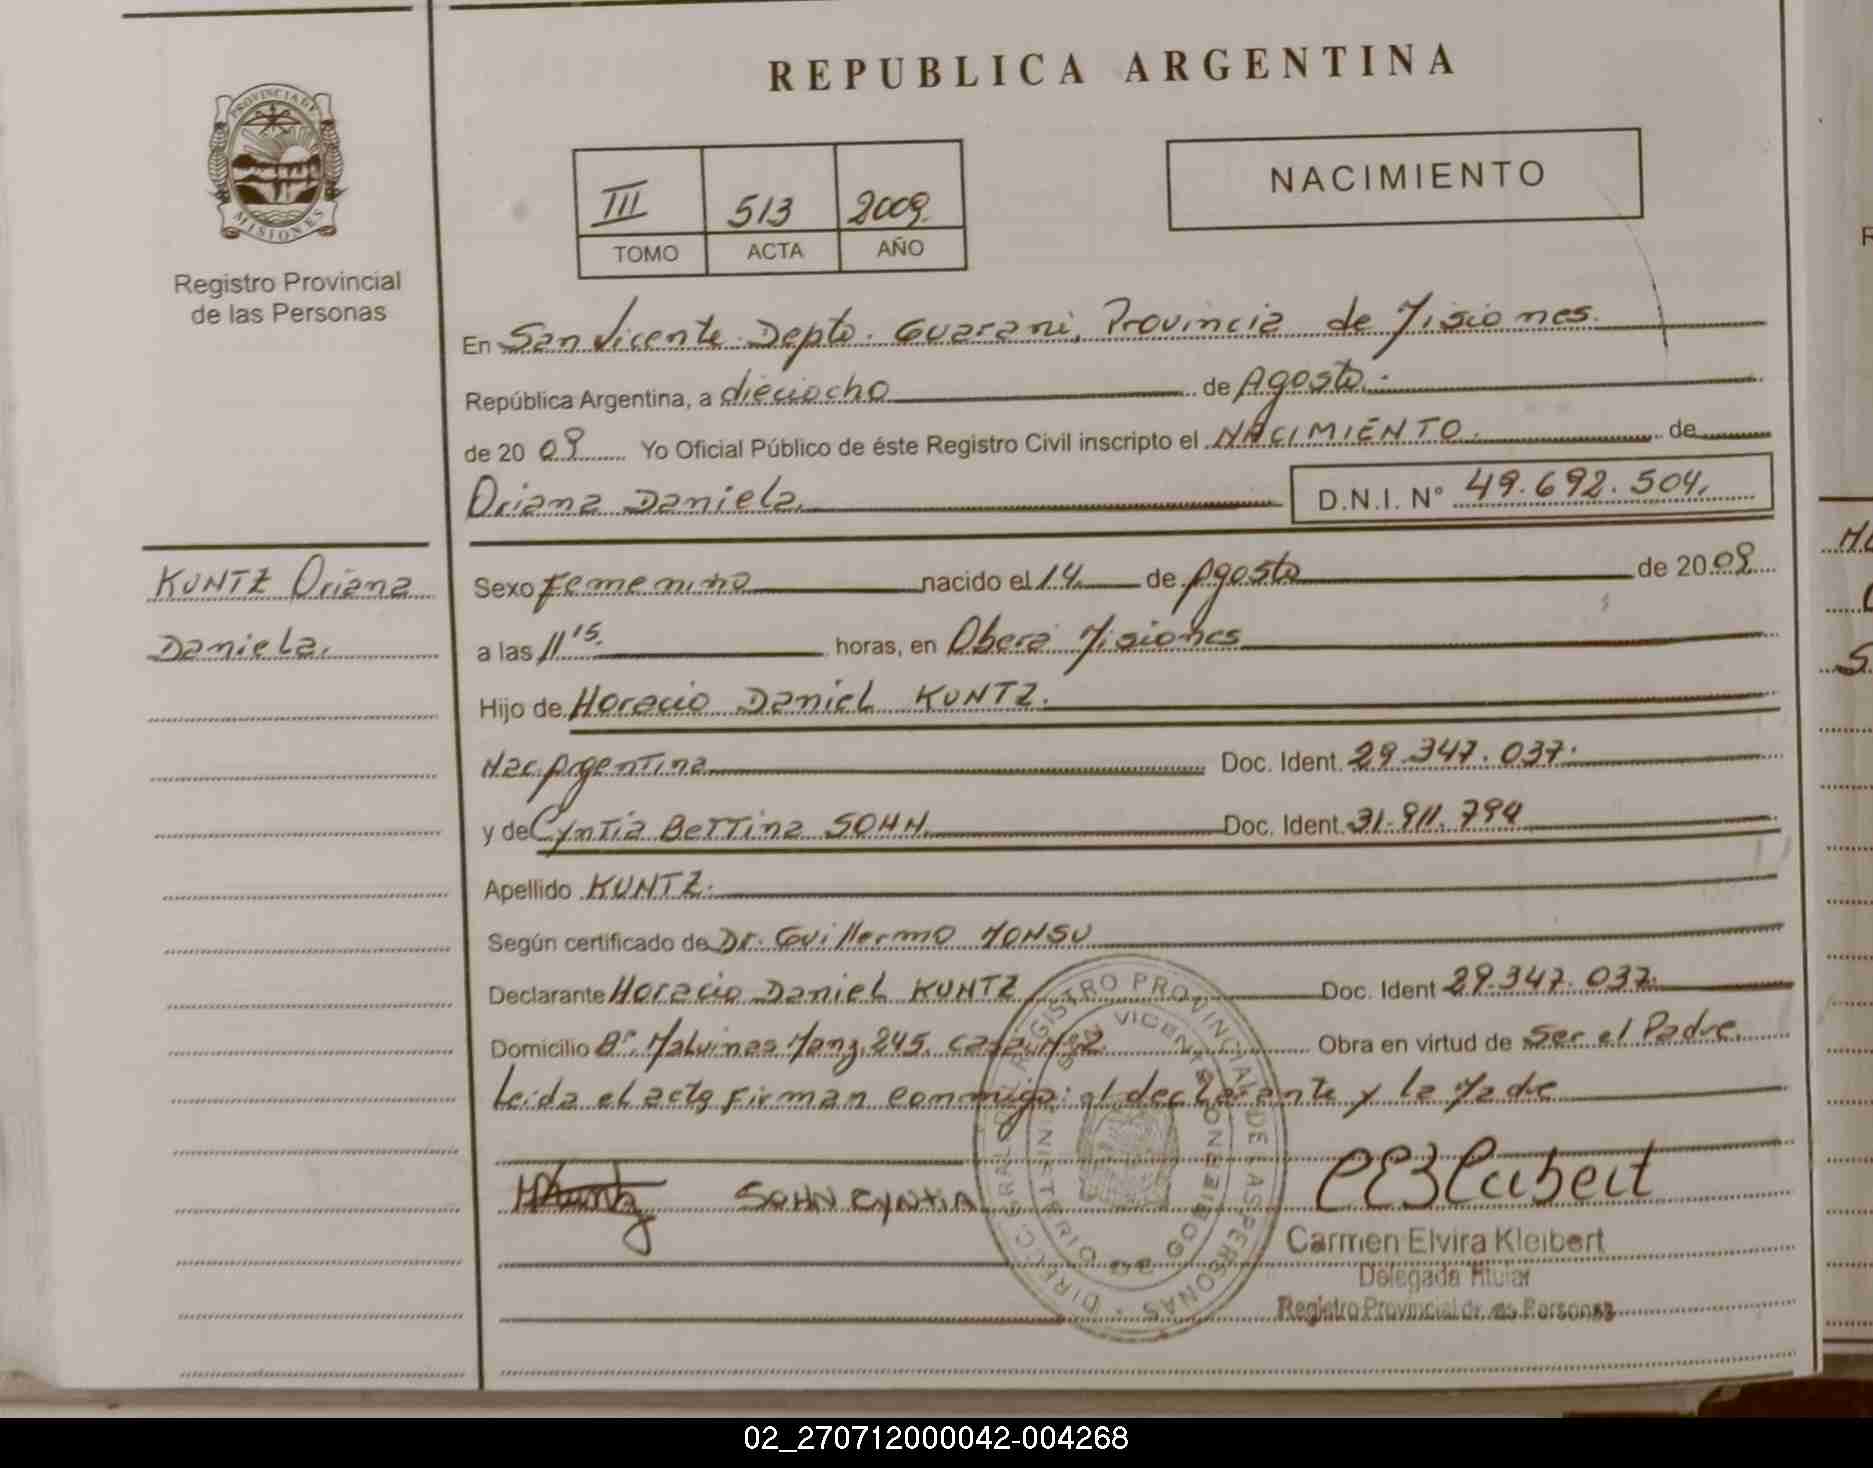 REPUBLICA ARGENTINA
PROVINCIA DE
MISIONES
Registro Provincial
de las Personas
III 513 2009
TOMO ACTA AÑO
NACIMIENTO
En San Vicente Depto. Guarani, Provincia de Misiones.
República Argentina, a dieciocho de Agosto.
de 20 09 Yo Oficial Público de éste Registro Civil inscripto el NACIMIENTO. de
Oriana Daniela. D.N.I. N° 49.692.504.
KUNTZ Oriana
Daniela.
Sexo Femenino nacido el 14 de Agosto de 20 09
a las 11 15. horas, en Oberá Misiones
Hijo de Horacio Daniel KUNTZ.
Nac. Argentina Doc. Ident. 29.347.037.
y de Cyntia Bettina SOHN. Doc. Ident. 31.911.794
Apellido KUNTZ.
Según certificado de Dr. Guillermo MONSU
Declarante Horacio Daniel KUNTZ Doc. Ident 29.347.037.
Domicilio B° Malvinas Manz. 245. Casa N° 2 Obra en virtud de Ser el Padre.
Leida el acta firman conmigo: el declarante y la Madre
HKuntz SOHN CYNTIA CEKleibert
DIRECC. GRAL. DEL REGISTRO PROVINCIAL DE LAS PERSONAS
SAN VICENTE MISIONES
MINISTERIO DE GOBIERNO
Carmen Elvira Kleibert
Delegada Titular
Registro Provincial de las Personas
02_270712000042-004268